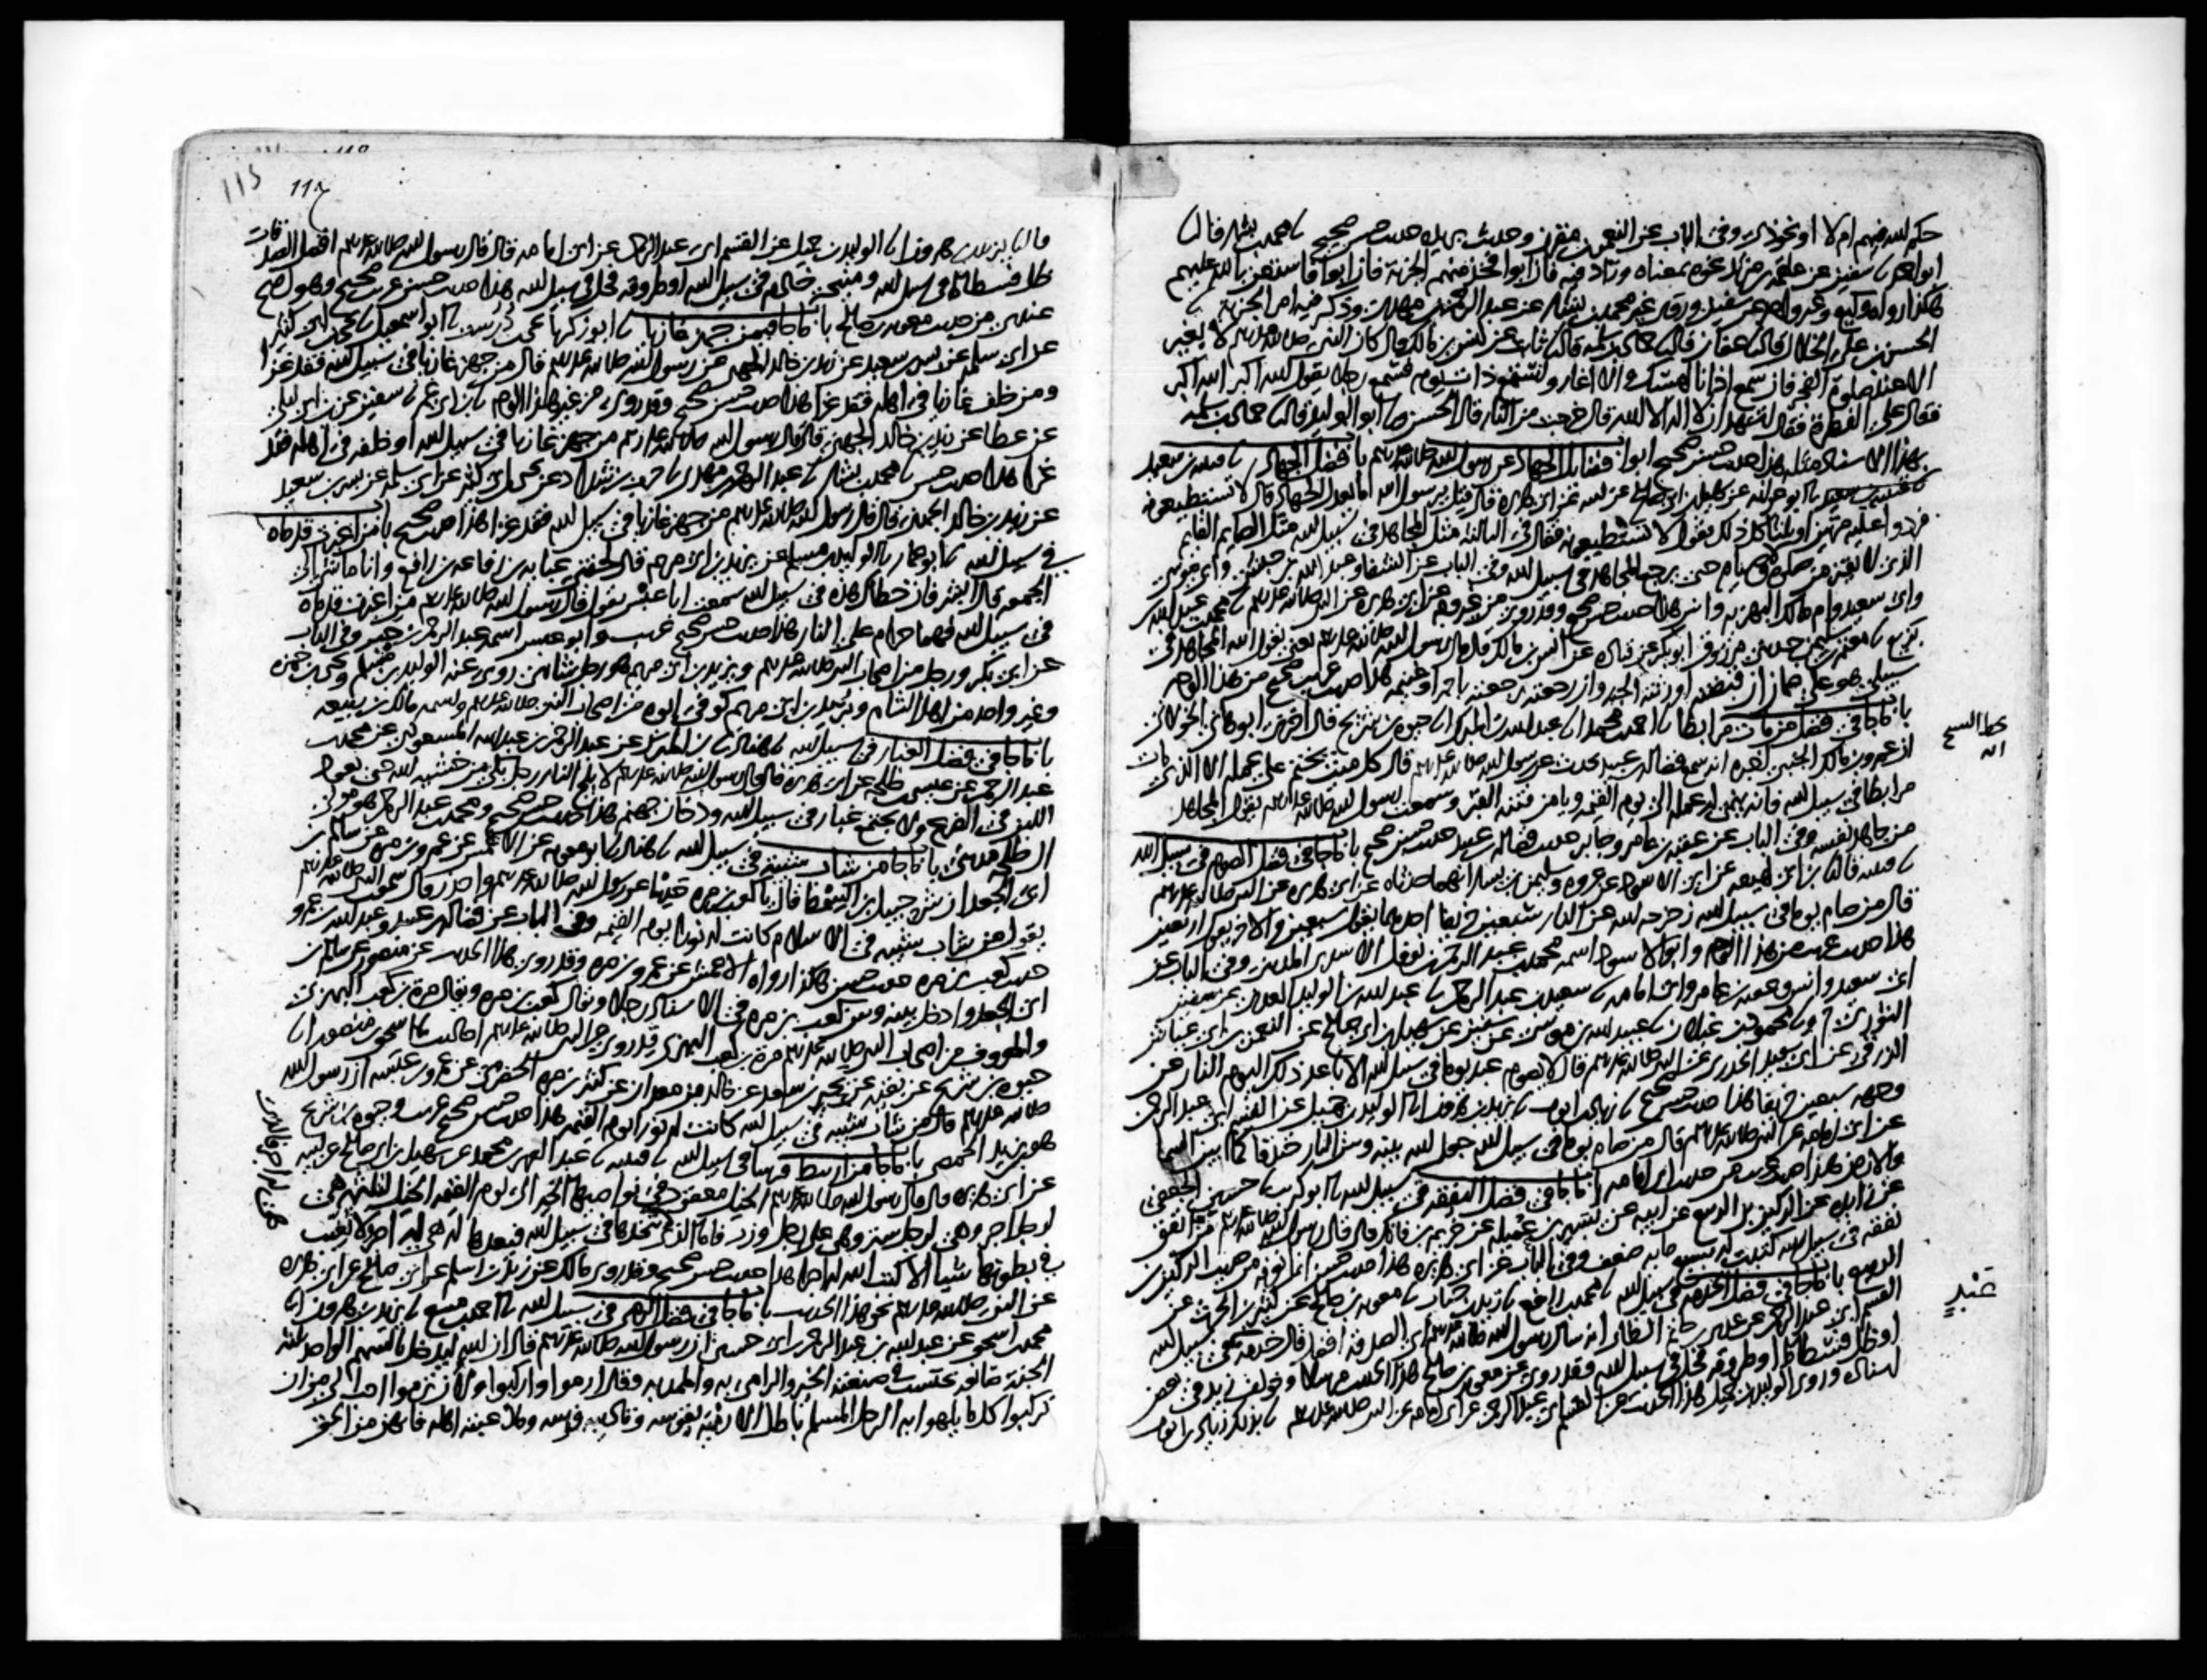 حكم الله فيهم ام لا او نحو ذا وفي الباب عن النعمن بن مقرن وحديث بريدة حديث حسن صحيح نا محمد بن بشار قال نا
ابو احمد نا سفين عن علقمة بن مرثد نحوه بمعناه وزاد فيه فان ابوا فخذ منهم الجزية فان ابوا فاستعن بالله عليهم
هكذا رواه وكيع وغير واحد عن سفين وروى غير محمد بن بشار عن عبد الرحمن بن مهدي وذكر فيه امر الجزية نا
الحسن بن علي الخلال قال نا عفان قال نا حماد بن سلمة قال نا ثابت عن انس بن مالك قال كان النبي صلى الله عليه وسلم لا يغير
الا عند صلوة الفجر فان سمع اذانا امسك والا اغار واستمع ذات يوم فسمع رجلا يقول الله اكبر الله اكبر
فقال على الفطرة فقال اشهد ان لا اله الا الله قال خرجت من النار قال الحسن نا ابو الوليد قال نا حماد بن سلمة
بهذا الاسناد مثله هذا حديث حسن صحيح ابواب فضائل الجهاد عن رسول الله صلى الله عليه وسلم باب فضل الجهاد نا قتيبة بن سعيد
نا ابو عوانة عن سهيل بن ابي صالح عن ابيه عن ابي هريرة قال قيل يرسول الله ما يعدل الجهاد قال لا تستطيعونه
فردوا عليه مرتين او ثلثا كل ذلك يقول لا تستطيعونه فقال في الثالثة مثل المجاهد في سبيل الله مثل الصايم القايم
الذي لا يفتر من صلوة ولا صيام حتى يرجع المجاهد في سبيل الله وفي الباب عن الشفاء وعبد الله بن حبشي وابي موسى
وابي سعيد وام مالك البهزية وانس هذا حديث حسن صحيح وقد روي من غير وجه عن ابي هريرة عن النبي صلى الله عليه وسلم نا محمد بن عبد الله
بن بزيع نا معتمر بن سليمن حدثني مرزوق ابو بكر عن قتادة عن انس بن مالك قال قال رسول الله صلى الله عليه وسلم يعني يقول الله المجاهد في
سبيلي هو علي ضمان ان قبضته اورثته الجنة وان رجعته رجعته باجر او غنيمة هذا حديث غريب صحيح من هذا الوجه
باب ما جا في فضل من مات مرابطا نا احمد بن محمد انا عبد الله بن المبرك انا حيوة بن شريح قال اخبرني ابو هاني الخولاني
ان عمرو بن مالك الجنبي اخبره انه سمع فضالة بن عبيد يحدث عن رسول الله صلى الله عليه وسلم قال كل ميت يختم على عمله الا الذي مات
مرابطا في سبيل الله فانه ينمي له عمله الى يوم القيمة ويامن فتنة القبر وسمعت رسول الله صلى الله عليه وسلم يقول المجاهد
من جاهد نفسه وفي الباب عن عقبة بن عامر وجابر حديث فضالة بن عبيد حديث حسن صحيح باب ما جا في فضل الصوم في سبيل الله
نا قتيبة قال نا ابن لهيعة عن ابي الاسود عن عروة وسليمن بن يسار انهما حدثاه عن ابي هريرة عن النبي صلى الله عليه وسلم
قال من صام يوما في سبيل الله زحزحه الله عن النار سبعين خريفا احدهما يقول سبعين والاخر يقول اربعين
هذا حديث غريب من هذا الوجه وابو الاسود اسمه محمد بن عبد الرحمن بن نوفل الاسدي المديني وفي الباب عن
ابي سعيد وانس وعقبة بن عامر وابي امامة نا سعيد بن عبد الرحمن نا عبد الله بن الوليد العدني عن سفين
الثوري ح ونا محمود بن غيلان نا عبيد الله بن موسى عن سفين عن سهيل بن ابي صالح عن النعمن بن ابي عياش
الزرقي عن ابي سعيد الخدري عن النبي صلى الله عليه وسلم قال لا يصوم عبد يوما في سبيل الله الا باعد ذلك اليوم النار عن
وجهه سبعين خريفا هذا حديث حسن صحيح نا زياد بن ايوب نا يزيد بن هرون انا الوليد بن جميل عن القسم ابي عبد الرحمن
عن ابي امامة عن النبي صلى الله عليه وسلم قال من صام يوما في سبيل الله جعل الله بينه وبين النار خندقا كما بين السما
والارض هذا حديث غريب من حديث ابي امامة باب ما جا في فضل النفقة في سبيل الله نا ابو كريب نا حسين الجعفي
عن زايدة عن الركين بن الربيع عن ابيه عن يسير بن عميلة عن خريم بن فاتك قال قال رسول الله صلى الله عليه وسلم من انفق
نفقة في سبيل الله كتبت له بسبع ماية ضعف وفي الباب عن ابي هريرة هذا حديث حسن انما نعرفه من حديث الركين بن
الربيع باب ما جا في فضل الخدمة في سبيل الله نا محمد بن رافع نا زيد بن حباب نا معوية بن صالح عن كثير بن الحرث عن
القسم ابي عبد الرحمن عن عدي بن حاتم الطائي انه سال رسول الله صلى الله عليه وسلم اي الصدقة افضل قال خدمة عبد في سبيل الله
او ظل فسطاط او طروقة فحل في سبيل الله وقد روي عن معوية بن صالح هذا الحديث مرسلا وخولف زيد في بعض
اسناده وروى الوليد بن جميل هذا الحديث عن القسم ابي عبد الرحمن عن ابي امامة عن النبي صلى الله عليه وسلم نا بذلك زياد بن ايوب
115
قال نا يزيد بن هرون انا الوليد بن جميل عن القسم ابي عبد الرحمن عن ابي امامة قال قال رسول الله صلى الله عليه وسلم افضل الصدقات
ظل فسطاط في سبيل الله ومنيحة خادم في سبيل الله او طروقة فحل في سبيل الله هذا حديث حسن غريب صحيح وهو اصح
عندي من حديث معوية بن صالح باب ما جا فيمن جهز غازيا نا ابو زكريا يحيى بن درست نا ابو اسمعيل نا يحيى بن ابي كثير
عن ابي سلمة عن بسر بن سعيد عن زيد بن خالد الجهني عن رسول الله صلى الله عليه وسلم قال من جهز غازيا في سبيل الله فقد غزا
ومن خلف غازيا في اهله فقد غزا هذا حديث حسن صحيح وقد روي من غير هذا الوجه نا ابن ابي عمر نا سفين عن ابن ابي ليلى
عن عطا عن زيد بن خالد الجهني قال قال رسول الله صلى الله عليه وسلم من جهز غازيا في سبيل الله او خلفه في اهله فقد
غزا هذا حديث حسن نا محمد بن بشار نا عبد الرحمن بن مهدي نا حرب بن شداد عن يحيى بن ابي كثير عن ابي سلمة عن بسر بن سعيد
عن زيد بن خالد الجهني قال قال رسول الله صلى الله عليه وسلم من جهز غازيا في سبيل الله فقد غزا هذا حديث صحيح باب من اغبرت قدماه
في سبيل الله نا ابو عمار نا الوليد بن مسلم عن يزيد بن ابي مريم قال لحقني عباية بن رفاعة بن رافع وانا ماش الى
الجمعة فقال ابشر فان خطاك هذه في سبيل الله سمعت ابا عبس يقول قال رسول الله صلى الله عليه وسلم من اغبرت قدماه
في سبيل الله فهما حرام على النار هذا حديث حسن صحيح غريب وابو عبس اسمه عبد الرحمن بن جبر وفي الباب
عن ابي بكر ورجل من اصحاب النبي صلى الله عليه وسلم ويزيد بن ابي مريم هو رجل شامي روى عنه الوليد بن مسلم ويحيى بن حمزة
وغير واحد من اهل الشام وبريد بن ابي مريم كوفي ابوه من اصحاب النبي صلى الله عليه وسلم واسمه مالك بن ربيعة
باب ما جا في فضل الغبار في سبيل الله نا هناد نا ابن المبرك عن عبد الرحمن بن عبد الله المسعودي عن محمد بن
عبد الرحمن عن عيسى بن طلحة عن ابي هريرة قال قال رسول الله صلى الله عليه وسلم لا يلج النار رجل بكى من خشية الله حتى يعود
اللبن في الضرع ولا يجتمع غبار في سبيل الله ودخان جهنم هذا حديث حسن صحيح ومحمد بن عبد الرحمن هو مولى
ال طلحة مديني باب ما جا من شاب شيبة في سبيل الله نا هناد نا ابو معوية عن الاعمش عن عمرو بن مرة عن سالم بن
ابي الجعد ان شرحبيل بن السمط قال يا كعب بن مرة حدثنا عن رسول الله صلى الله عليه وسلم واحذر قال سمعت النبي صلى الله عليه وسلم
يقول من شاب شيبة في الاسلام كانت له نورا يوم القيمة وفي الباب عن فضالة بن عبيد وعبد الله بن عمرو
حديث كعب بن مرة حديث حسن هكذا رواه الاعمش عن عمرو بن مرة وقد روي هذا الحديث عن منصور عن سالم بن
ابي الجعد وادخل بينه وبين كعب بن مرة في الاسناد رجلا ويقال كعب بن مرة ويقال مرة بن كعب البهزي
والمعروف من اصحاب النبي صلى الله عليه وسلم مرة بن كعب البهزي وقد روى عن النبي صلى الله عليه وسلم احاديث نا اسحق بن منصور انا
حيوة بن شريح عن بقية عن بحير بن سعد عن خالد بن معدان عن كثير بن مرة الحضرمي عن عمرو بن عبسة ان رسول الله
صلى الله عليه وسلم قال من شاب شيبة في سبيل الله كانت له نورا يوم القيمة هذا حديث حسن صحيح غريب وحيوة بن شريح
هو ابن يزيد الحمصي باب ما جا من ارتبط فرسا في سبيل الله نا قتيبة نا عبد العزيز بن محمد عن سهيل بن ابي صالح عن ابيه
عن ابي هريرة قال قال رسول الله صلى الله عليه وسلم الخيل معقود في نواصيها الخير الى يوم القيمة الخيل لثلثة هي
لرجل اجر وهي لرجل ستر وهي على رجل وزر فاما الذي يتخذها في سبيل الله فيعدها له هي له اجر لا يغيب
في بطونها شيا الا كتب الله له اجرا هذا حديث حسن صحيح وقد روى مالك عن زيد بن اسلم عن ابي صالح عن ابي هريرة
عن النبي صلى الله عليه وسلم نحو هذا الحديث باب ما جا في فضل الرمي في سبيل الله نا احمد بن منيع نا يزيد بن هرون انا
محمد بن اسحق عن عبد الله بن عبد الرحمن بن ابي حسين ان رسول الله صلى الله عليه وسلم قال ان الله ليدخل بالسهم الواحد ثلثة
الجنة صانعه يحتسب في صنعته الخير والرامي به والممد به وقال ارموا واركبوا ولان ترموا احب الي من ان
تركبوا كل ما يلهو به الرجل المسلم باطل الا رميه بقوسه وتاديبه فرسه وملاعبته اهله فانهن من الحق